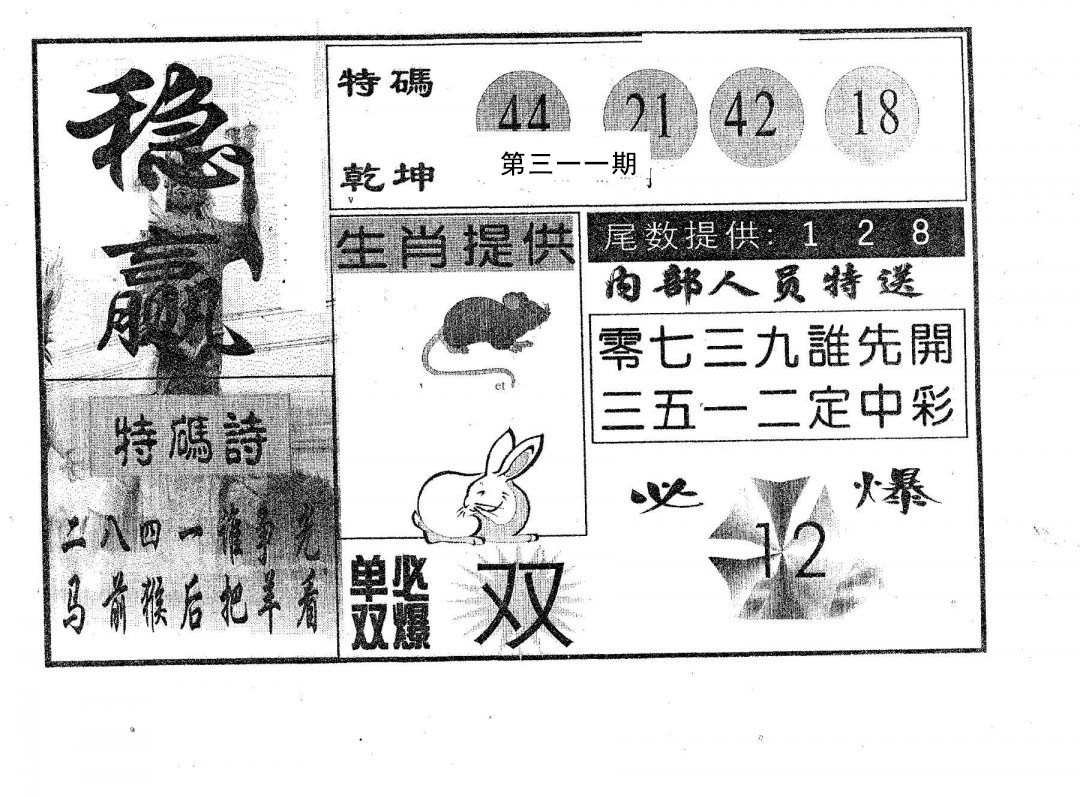 稳赢
特碼
44 21 42 18
第三一一期
乾坤
生肖提供
et
尾数提供: 1 2 8
内部人员特送
零七三九誰先開
三五一二定中彩
特碼詩
二八四一谁争先
马前猴后把羊看
必爆
12
单双必爆
双